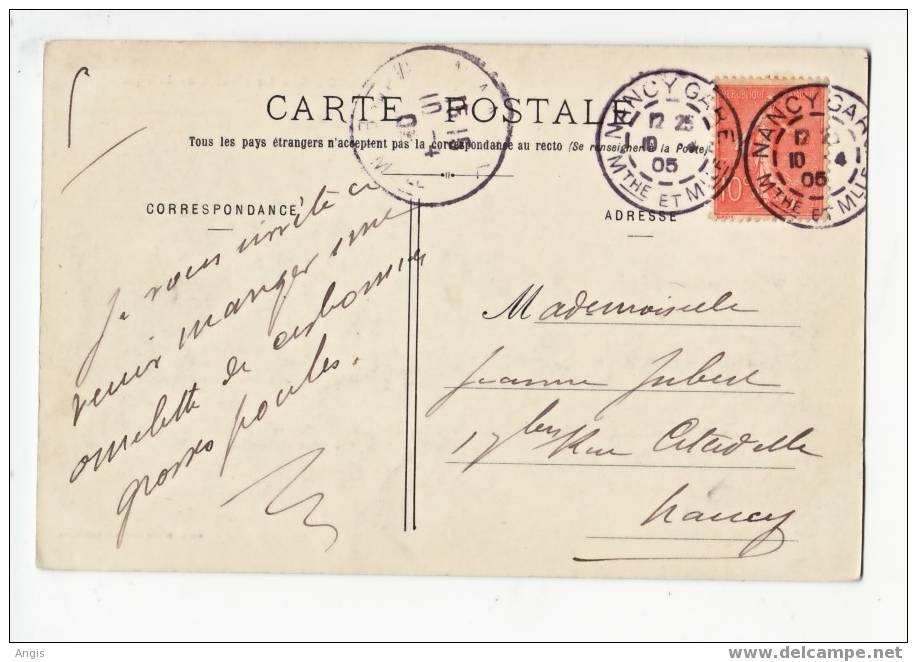 CARTE POSTALE
Tous les pays étrangers n'acceptent pas la correspondance au recto (Se renseigner à la Poste)
CORRESPONDANCE
ADRESSE
Je vous invite a
venir manger une
omelette de ces bonnes
grosses poules.
Mademoiselle
Jeanne Jubert
17 bis Rue Citadelle
Nancy
NANCY GARE
12 25
10 4
05
MTHE ET MLLE
NANCY GAR
12
10 4
05
MTHE ET M
Angis
www.delcampe.net